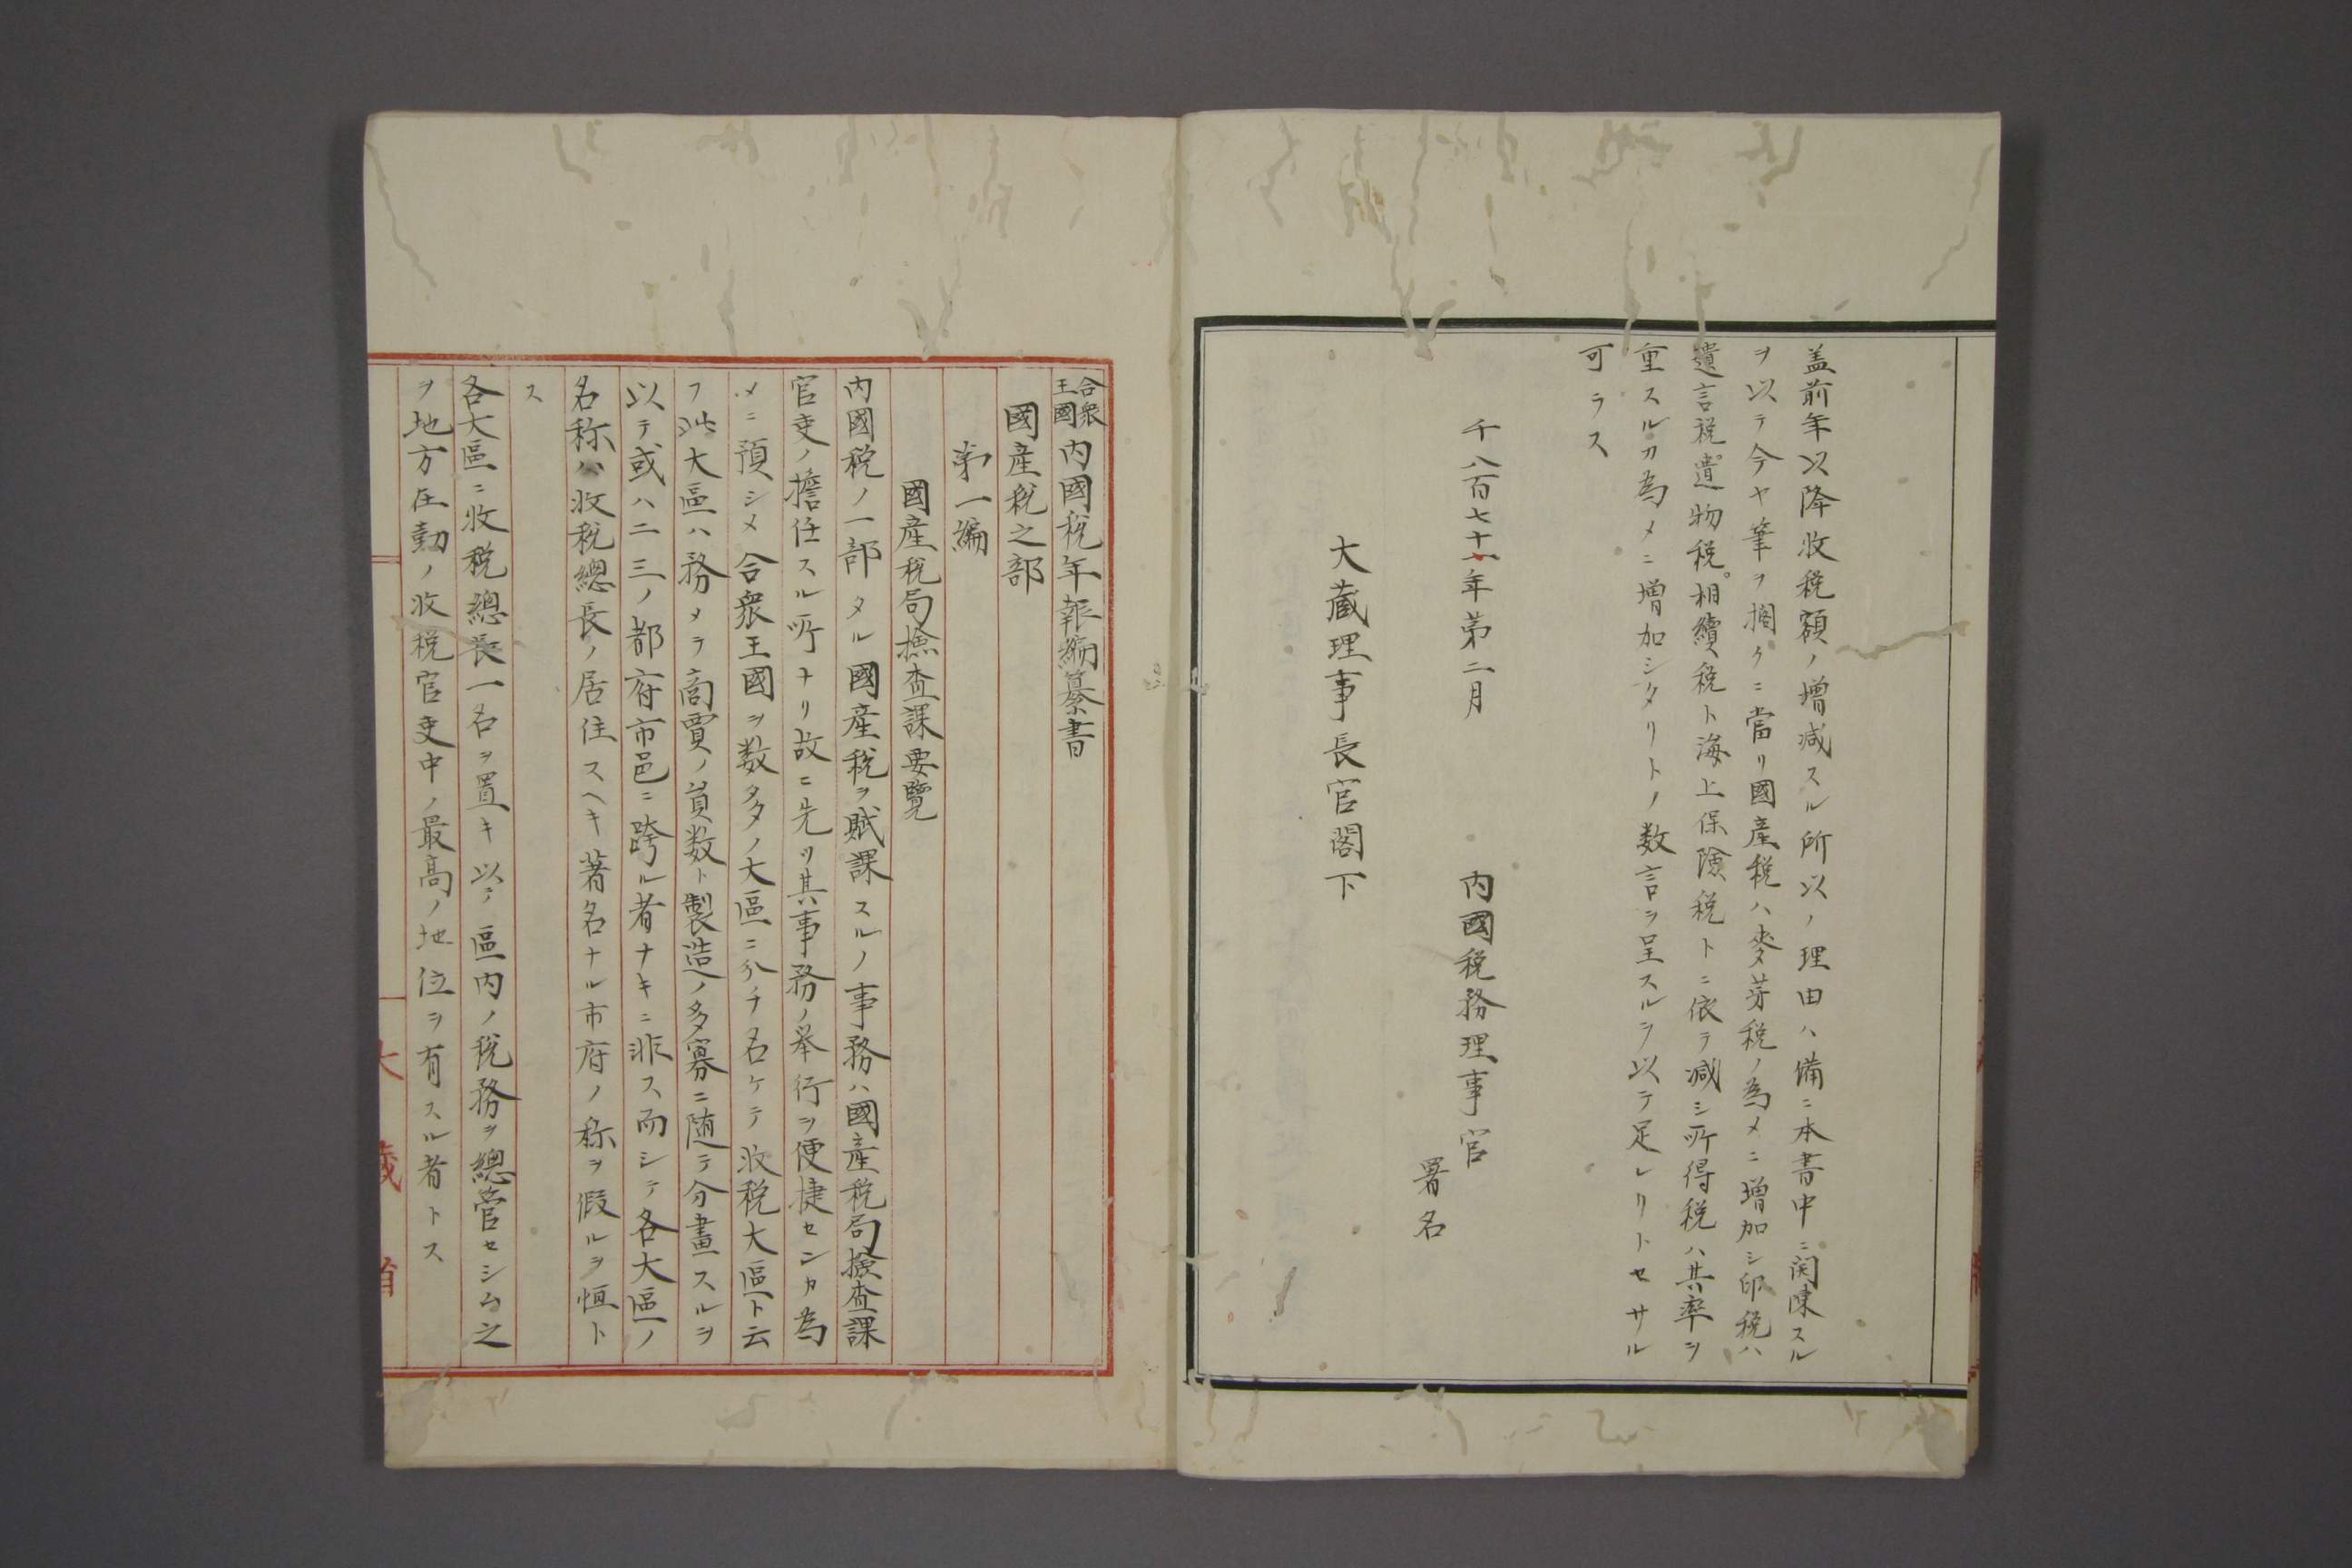 盖前年以降收税額ノ増減スル所以ノ理由ハ備ニ本書中ニ関陳スル
ヲ以テ今ヤ筆ヲ擱クニ當リ國産税ハ麥芽税ノ為メニ増加シ印税ハ
遺言税。遺物税。相續税ト海上保険税トニ依テ減シ所得税ハ其率ヲ
重スルカ為メニ増加シタリトノ数言ヲ呈スルヲ以テ足レリトセサル
可ラス
千八百七十年第二月
内國税務理事官
署名
大蔵理事長官閣下
合衆王國内國税年報編纂書
國産税之部
第一編
國産税局撿査課要覽
内國税ノ一部タル國産税ヲ賦課スルノ事務ハ國産税局撿査課
官吏ノ擔任スル所ナリ故ニ先ツ其事務ノ挙行ヲ便捷センカ為
メニ預シメ合衆王國ヲ数多ノ大區ニ分チ名ケテ收税大區ト云
フ此大區ハ務メテ商賈ノ員数ト製造ノ多寡ニ随テ分畫スルヲ
以テ或ハ二三ノ都府市邑ニ跨ル者ナキニ非ス而シテ各大區ノ
名称ハ收税總長ノ居住スヘキ著名ナル市府ノ称ヲ假ルヲ恒ト
ス
各大區ニ收税總長一名ヲ置キ以テ區内ノ税務ヲ總管セシム之
ヲ地方在勤ノ收税官吏中ノ最高ノ地位ヲ有スル者トス
大藏省